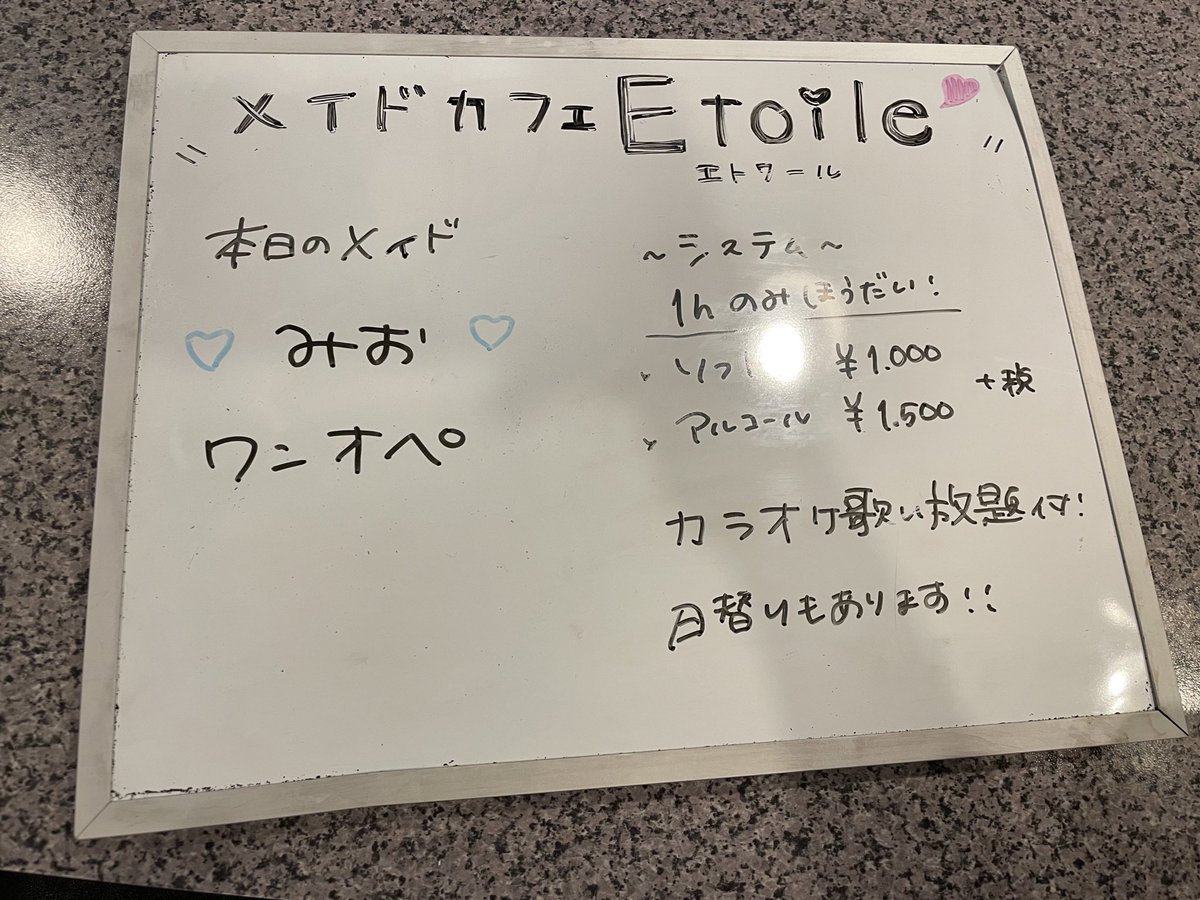 メイドカフェEtoile
エトワール
本日のメイド
みお
ワンオペ
~システム~
1hのみほうだい!
ソフト ¥1.000
アルコール ¥1.500
+税
カラオケ歌い放題付!
日替りもあります!!